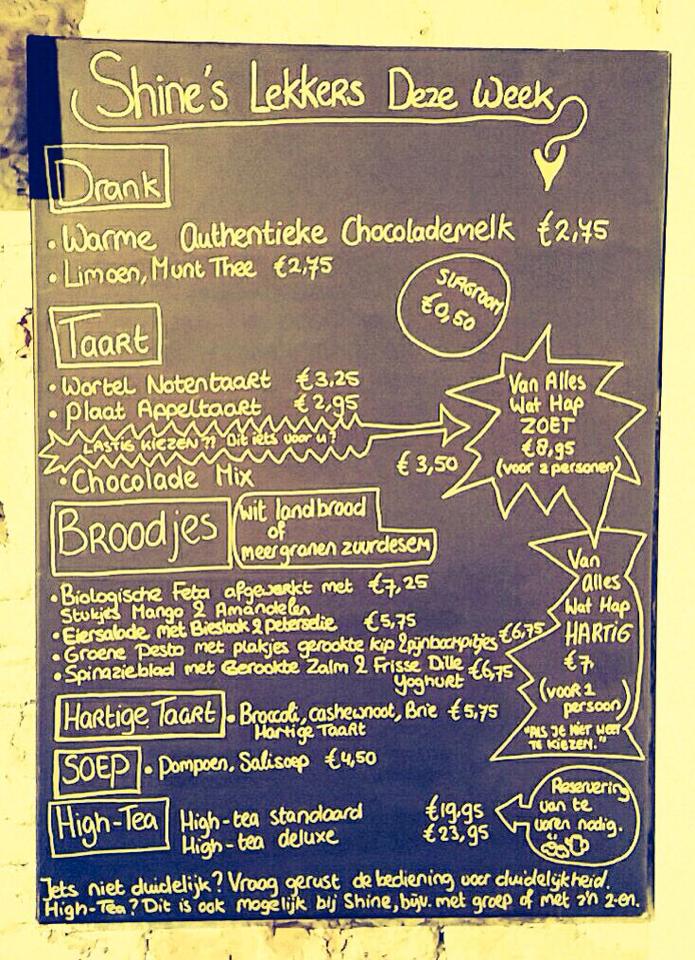 Shine's Lekkers Deze Week
Drank
• Warme Authentieke Chocolademelk €2,75
• Limoen, Munt Thee €2,75
SLAGROOM
€0,50
Taart
• Wortel Notentaart €3,25
• Plaat Appeltaart €2,95
LASTIG KIEZEN?? Dit iets voor u?
• Chocolade Mix €3,50
Van Alles
Wat Hap
ZOET
€8,95
(voor 2 personen)
Broodjes
wit landbrood
of
meergranen zuurdesem
• Biologische Feta afgewerkt met €7,25
Stukjes Mango & Amandelen
• Eiersalade met Bieslook & peterselie €5,75
• Groene Pesto met plakjes gerookte kip & pijnboompitjes €6,75
• Spinazieblad met Gerookte Zalm & Frisse Dille €6,75
Yoghurt
Van
Alles
Wat Hap
HARTIG
€7,
(voor 1
persoon)
"ALS JE NIET WEET
TE KIEZEN."
Hartige Taart • Broccoli, cashewnoot, Brie €5,75
Hartige Taart
SOEP • Pompoen, Salisoep €4,50
High-Tea
High-tea standaard €19,95
High-tea deluxe €23,95
Reservering
van te
voren nodig.
Iets niet duidelijk? Vraag gerust de bediening voor duidelijkheid.
High-Tea? Dit is ook mogelijk bij Shine, bijv. met groep of met z'n 2-en.